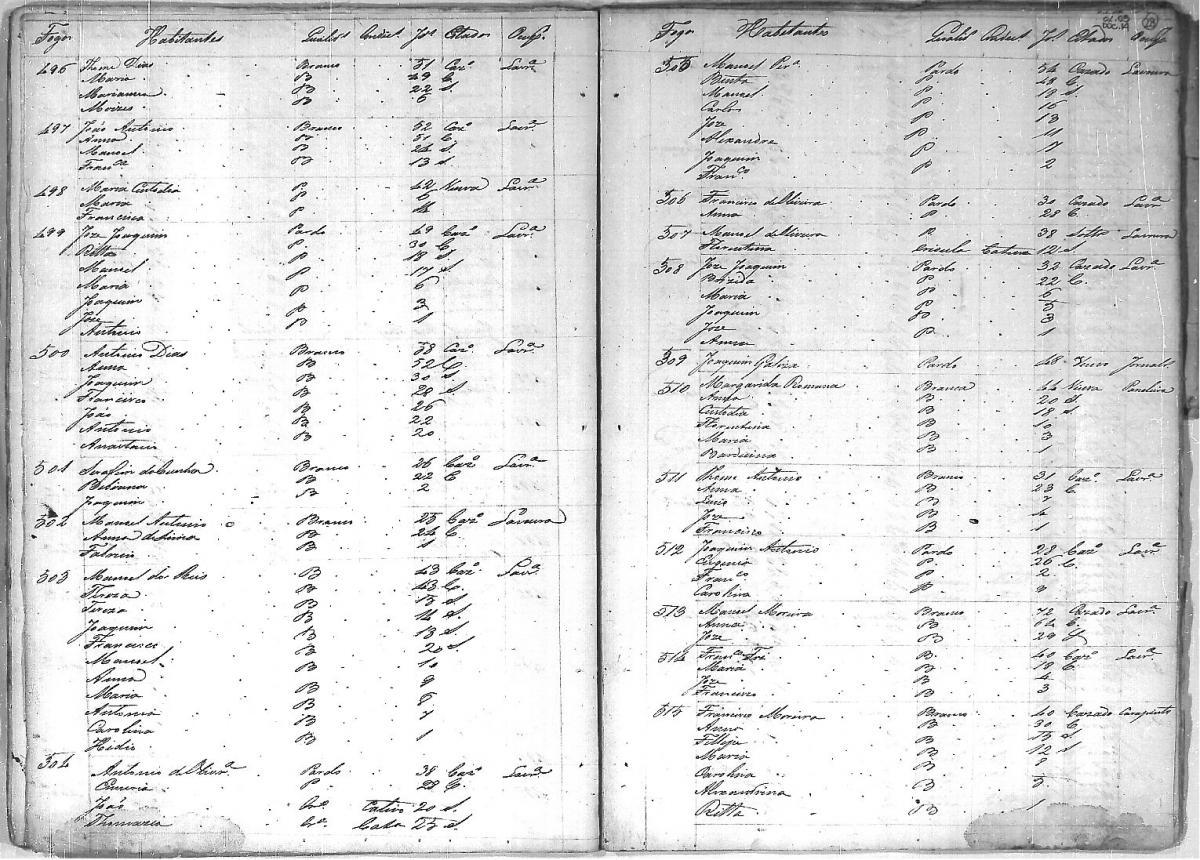 Fogos Habitantes Qualid.e Condict. Id.e Estados Ocup.
496 Thome Dias Branco 51 Caz.o Lavr.a
Maria B 49 C.
Marianna B 22 S.
Moizes B 6
497 João Antonio Branco 52 Caz.o Lavr.a
Anna B 51 C.
Manoel B 24 S.
Fran.ca B 13 S.
498 Maria Custodia P. 42 Viuva Lavr.a
Maria P 6
Francisca P 4
499 Joze Joaquim Pardo 49 Caz.o Lavr.a
Ritta P. 30 C.
Manoel P 18 S.
Maria P 17 S.
Joaquim P 6
Joze P 3
Antonio P 1
500 Antonio Dias Branco 58 Caz.o Lavr.a
Anna B 52 C.
Joaquim B 30 S.
Francisco B 28 S.
João B 26
Antonio B 22
Anastacio B 20
501 Serafim da Cunha Branco 26 Caz.o Lavr.a
Bibiana B 22 C
Joaquim B 2
502 Manoel Antonio Branco 25 Caz.o Lavoura
Anna B 24 C.
B 1
503 Manoel dos Reis B 43 Caz.o Lavr.a
Thereza B 43 C.
Tereza B 15 S.
Joaquim B 14 S.
Francisco B 13 S.
Manoel B 20 S
Anna B 10
Maria B 9
Antonia B 8
Carolina B 7
B 1
504 Antonio de Olivr.a Pardo 38 Caz.o Lavr.a
P. 28 C.
João Cr.o Cativo 20 S.
Cr.a Cata 25 S.
Fogos Habitantes Qualid.e Condict. Id.e Estados Ocup.
505 Manoel Per.a Pardo 54 Cazado Lavoura
Benta P. 48 C.
Manoel P. 19 S
Carlos P. 16
Joze P. 13
Alexandre P 11
Joaquim P 7
Fran.co P 2
506 Francisco de Oliveira Pardo 30 Cazado Lavr.a
Anna P 28 C.
507 Manoel de Oliveira P. 38 Solto Lavoura
Florentina Crioula Cativa 12 S
508 Joze Joaquim Pardo 32 Cazado Lavr.a
Brizida P 22 C.
Maria P 6
Joaquim P 5
Joze P 3
Anna P. 1
509 Joaquim Pardo 48 Viuvo Jornal.
510 Margarida Romana Branca 44 Viuva Paneleira
Anna B 20 S
Custodia B 18 S.
Florentina B 10
Maria B 3
B 1
511 Thome Antonio Branco 31 Caz.o Lavr.a
Anna B 23 C.
B 7
Joze B 4
Francisco B 1
512 Joaquim Antonio Pardo 28 Caz.o Lavr.a
Eugenia P 26 C.
Fran.co P 2
Carolina P
513 Manoel Moreira Branco 72 Cazado Lavr.a
Anna B 64 C.
Joze B 29 S
514 Fran.co B. 40 Caz.o Lavr.a
Maria B 19 C
Joze B 4
Francisco B 3
515 Francisco Moreira Branco 40 Cazado Carapinto
Anna B 30 C
Fillipe B 15 S
Maria B 12 S
Carolina B 8
Alexandrina B 5
Ritta B 1